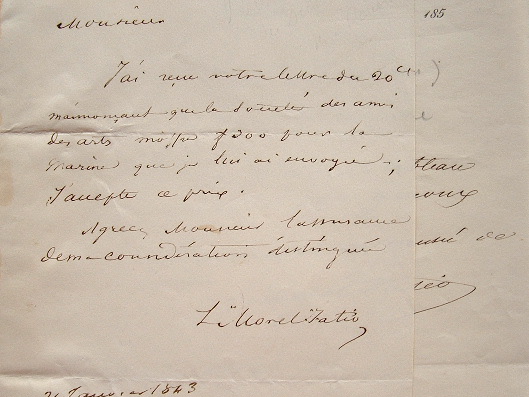 Monsieur
J'ai reçu votre lettre du 20 ct
m'annonçant que la Société des amis
des arts m'offre f 300 pour la
Marine que je lui ai envoyée ;
J'accepte ce prix.
Agréez Monsieur l'assurance
de ma considération distinguée
L. Morel-Fatio
Janvier 1843
185